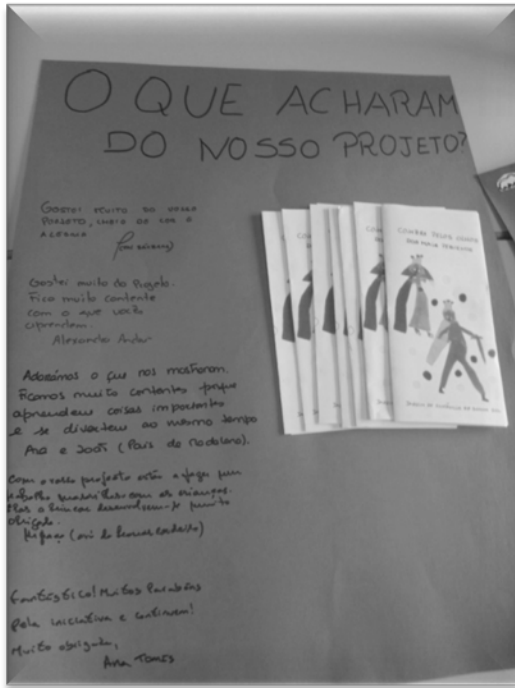 O QUE ACHARAM
DO NOSSO PROJETO?
Gostei muito do vosso
Projeto, cheio de cor e
alegria
Gostei muito do Projeto.
Fico muito contente
com o que vocês
aprendem.
Alexandre
Adorámos o que nos mostraram.
Ficamos muito contentes porque
aprendem coisas importantes
e se divertem ao mesmo tempo
Ana e João (Pais da Madalena).
Com o vosso projeto estão a fazer um
trabalho maravilhoso com as crianças.
Elas a brincar desenvolvem-se muito
Obrigado.
Fantástico! Muitos Parabéns
pela iniciativa e continuem!
Muito obrigada,
Ana Tomás